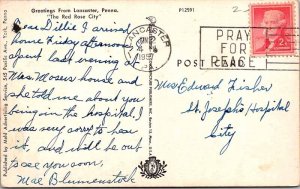 Greetings From Lancaster, Penna.
"The Red Rose City"
P12591
Dear Dillie I arrived
home Friday afternoon
spent last evening at
Mrs. Moser's house and
she told me about you
being in the hospital. I
was very sorry to hear
it, and will be out
to see you soon,
Mae Blumenstock
Published by Mail Advertising Service, York, Penna.
LANCASTER
1957
PA.
PRAY
FOR
PEACE
2¢
POST CARD
Mrs Edward Fisher
St. Joseph's Hospital
City